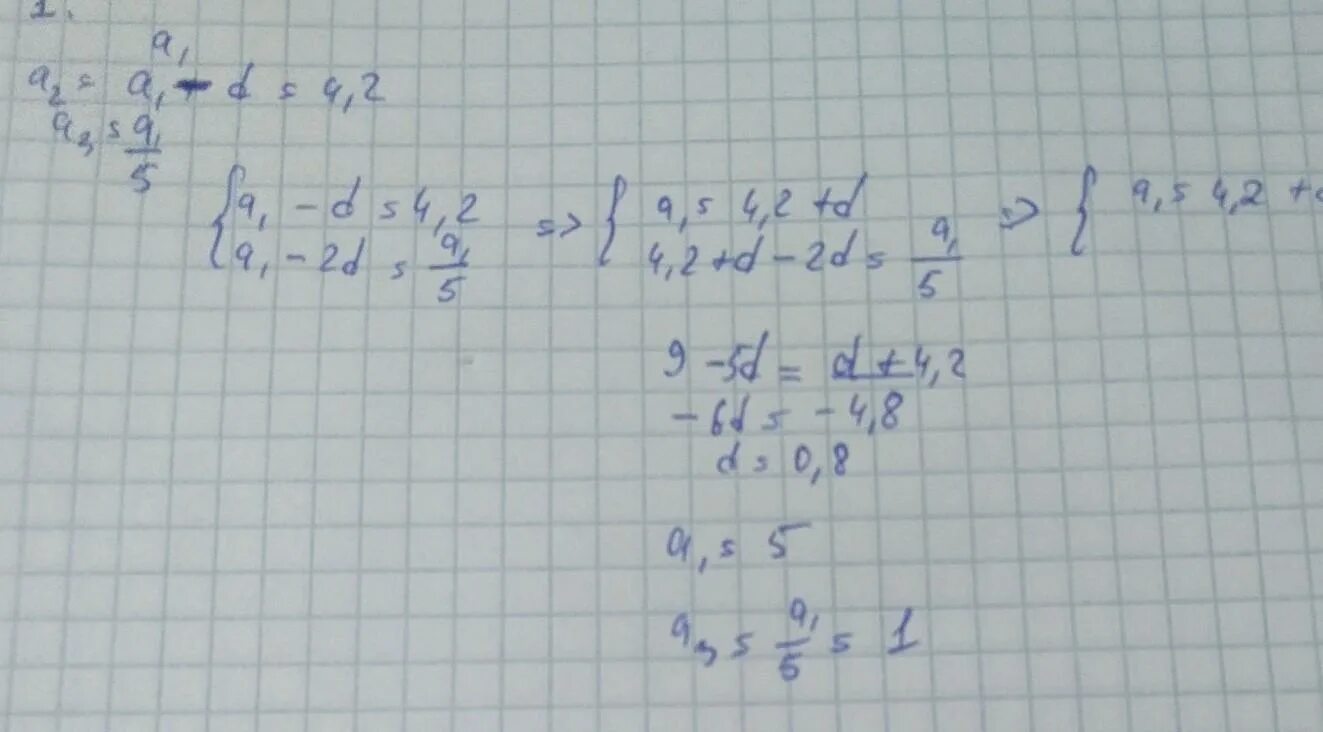 1.
a₁
a₂ = a₁ - d = 4,2
a₃ = a₁/5
{ a₁ - d = 4,2 => { a₁ = 4,2 + d => { a₁ = 4,2 +
a₁ - 2d = a₁/5 4,2 + d - 2d = a₁/5
9 - 5d = d + 4,2
-6d = -4,8
d = 0,8
a₁ = 5
a₃ = a₁/5 = 1